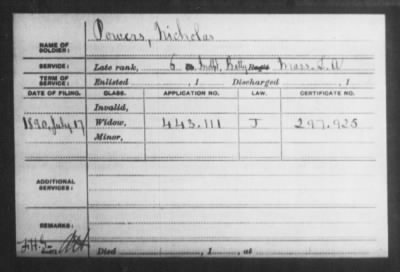 NAME OF SOLDIER: Powers, Nicholas
SERVICE: Late rank, 6 Indpt. Batty Regt Mass. L. A
TERM OF SERVICE: Enlisted , 1 Discharged , 1
DATE OF FILING. CLASS. APPLICATION NO. LAW. CERTIFICATE NO.
Invalid,
1890, July 17 Widow, 443.111 J 297.925
Minor,
ADDITIONAL SERVICES:
REMARKS:
Died , 1 , at